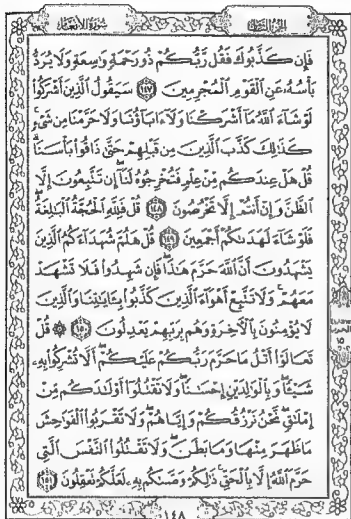 الجزء الثامن سورة الأنعام
فَإِن كَذَّبُوكَ فَقُل رَّبُّكُمْ ذُو رَحْمَةٍ وَٰسِعَةٍ وَلَا يُرَدُّ
بَأْسُهُۥ عَنِ ٱلْقَوْمِ ٱلْمُجْرِمِينَ ١٤٧ سَيَقُولُ ٱلَّذِينَ أَشْرَكُوا۟
لَوْ شَآءَ ٱللَّهُ مَآ أَشْرَكْنَا وَلَآ ءَابَآؤُنَا وَلَا حَرَّمْنَا مِن شَىْءٍ
كَذَٰلِكَ كَذَّبَ ٱلَّذِينَ مِن قَبْلِهِمْ حَتَّىٰ ذَاقُوا۟ بَأْسَنَا
قُلْ هَلْ عِندَكُم مِّنْ عِلْمٍ فَتُخْرِجُوهُ لَنَآ إِن تَتَّبِعُونَ إِلَّا
ٱلظَّنَّ وَإِنْ أَنتُمْ إِلَّا تَخْرُصُونَ ١٤٨ قُلْ فَلِلَّهِ ٱلْحُجَّةُ ٱلْبَٰلِغَةُ
فَلَوْ شَآءَ لَهَدَىٰكُمْ أَجْمَعِينَ ١٤٩ قُلْ هَلُمَّ شُهَدَآءَكُمُ ٱلَّذِينَ
يَشْهَدُونَ أَنَّ ٱللَّهَ حَرَّمَ هَٰذَا فَإِن شَهِدُوا۟ فَلَا تَشْهَدْ
مَعَهُمْ وَلَا تَتَّبِعْ أَهْوَآءَ ٱلَّذِينَ كَذَّبُوا۟ بِـَٔايَٰتِنَا وَٱلَّذِينَ
لَا يُؤْمِنُونَ بِٱلْءَاخِرَةِ وَهُم بِرَبِّهِمْ يَعْدِلُونَ ١٥٠ ۞ قُلْ
تَعَالَوْا۟ أَتْلُ مَا حَرَّمَ رَبُّكُمْ عَلَيْكُمْ أَلَّا تُشْرِكُوا۟ بِهِۦ
شَيْـًٔا وَبِٱلْوَٰلِدَيْنِ إِحْسَٰنًا وَلَا تَقْتُلُوٓا۟ أَوْلَٰدَكُم مِّنْ
إِمْلَٰقٍ نَّحْنُ نَرْزُقُكُمْ وَإِيَّاهُمْ وَلَا تَقْرَبُوا۟ ٱلْفَوَٰحِشَ
مَا ظَهَرَ مِنْهَا وَمَا بَطَنَ وَلَا تَقْتُلُوا۟ ٱلنَّفْسَ ٱلَّتِى
حَرَّمَ ٱللَّهُ إِلَّا بِٱلْحَقِّ ذَٰلِكُمْ وَصَّىٰكُم بِهِۦ لَعَلَّكُمْ تَعْقِلُونَ ١٥١
الحزب
١٥
١٤٨